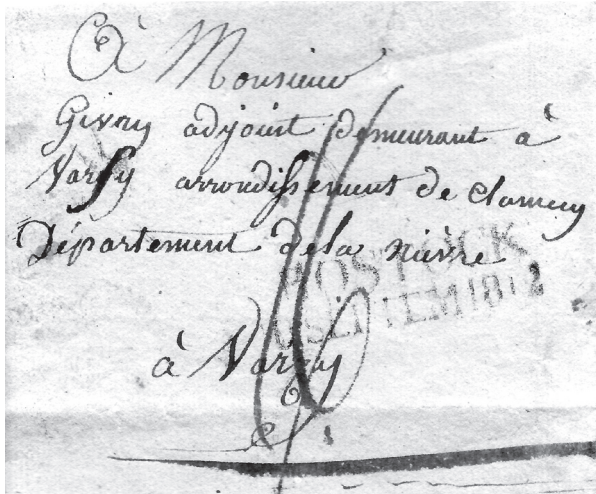 A Monsieur
Givry adjoint demeurant à
Varzy arrondissement de Clamecy
Département de la nièvre
ROSTOCK
SEPTEM 1812
à Varzy